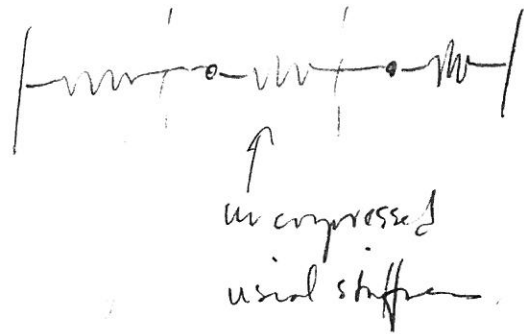 uncompressed
usual stiffness